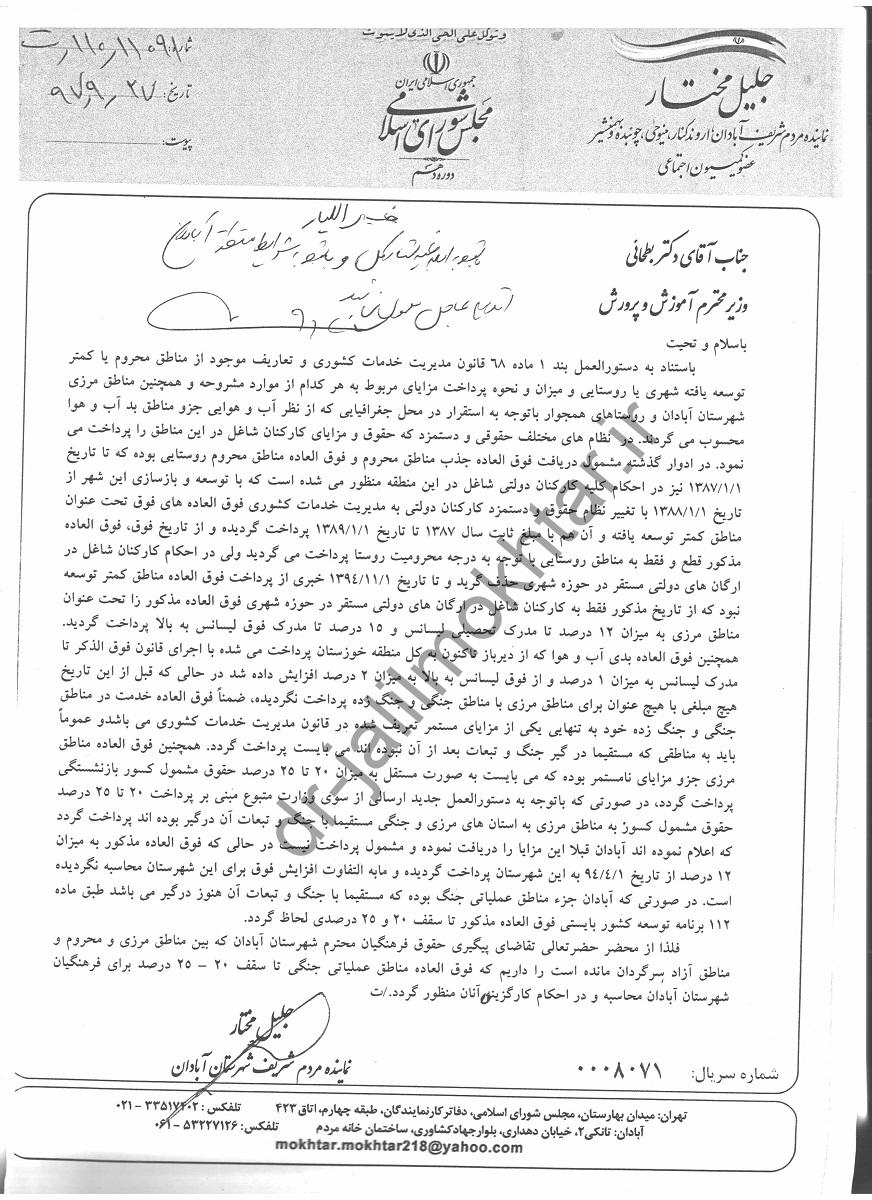 وتوکل علی الحی الذی لایموت
جمهوری اسلامی ایران
مجلس شورای اسلامی
دوره دهم
جلیل مختار
نماینده مردم شریف آبادان، اروندکنار، مینوحی، چوئبده و بهمنشیر
عضو کمیسیون اجتماعی
شماره:
تاریخ: ۹۷/۹/۲۷
پیوست:
جناب آقای دکتر بطحائی
وزیر محترم آموزش و پرورش
باسلام و تحیت
باستناد به دستورالعمل بند ۱ ماده ۶۸ قانون مدیریت خدمات کشوری و تعاریف موجود از مناطق محروم یا کمتر
توسعه یافته شهری یا روستایی و میزان و نحوه پرداخت مزایای مربوط به هر کدام از موارد مشروحه و همچنین مناطق مرزی
شهرستان آبادان و روستاهای همجوار باتوجه به استقرار در محل جغرافیایی که از نظر آب و هوایی جزو مناطق بد آب و هوا
محسوب می گردند. در نظام های مختلف حقوقی و دستمزد که حقوق و مزایای کارکنان شاغل در این مناطق را پرداخت می
نمود. در ادوار گذشته مشمول دریافت فوق العاده جذب مناطق محروم و فوق العاده مناطق محروم روستایی بوده که تا تاریخ
۱۳۸۷/۱/۱ نیز در احکام کلیه کارکنان دولتی شاغل در این منطقه منظور می شده است که با توسعه و بازسازی این شهر از
تاریخ ۱۳۸۸/۱/۱ با تغییر نظام حقوق و دستمزد کارکنان دولتی به مدیریت خدمات کشوری فوق العاده های فوق تحت عنوان
مناطق کمتر توسعه یافته و آن هم با مبلغ ثابت سال ۱۳۸۷ تا تاریخ ۱۳۸۹/۱/۱ پرداخت گردیده و از تاریخ فوق، فوق العاده
مذکور قطع و فقط به مناطق روستایی با توجه به درجه محرومیت روستا پرداخت می گردید ولی در احکام کارکنان شاغل در
ارگان های دولتی مستقر در حوزه شهری حذف گرید و تا تاریخ ۱۳۹۴/۱۱/۱ خبری از پرداخت فوق العاده مناطق کمتر توسعه
نبود که از تاریخ مذکور فقط به کارکنان شاغل در ارگان های دولتی مستقر در حوزه شهری فوق العاده مذکور زا تحت عنوان
مناطق مرزی به میزان ۱۲ درصد تا مدرک تحصیلی لیسانس و ۱۵ درصد تا مدرک فوق لیسانس به بالا پرداخت گردید.
همچنین فوق العاده بدی آب و هوا که از دیرباز تاکنون به کل منطقه خوزستان پرداخت می شده با اجرای قانون فوق الذکر تا
مدرک لیسانس به میزان ۱ درصد و از فوق لیسانس به بالا به میزان ۲ درصد افزایش داده شد در حالی که قبل از این تاریخ
هیچ مبلغی با هیچ عنوان برای مناطق مرزی با مناطق جنگی و جنگ زده پرداخت نگردیده، ضمناً فوق العاده خدمت در مناطق
جنگی و جنگ زده خود به تنهایی یکی از مزایای مستمر تعریف شده در قانون مدیریت خدمات کشوری می باشدو عموماً
باید به مناطقی که مستقیما در گیر جنگ و تبعات بعد از آن نبوده اند می بایست پرداخت گردد. همچنین فوق العاده مناطق
مرزی جزو مزایای نامستمر بوده که می بایست به صورت مستقل به میزان ۲۰ تا ۲۵ درصد حقوق مشمول کسور بازنشستگی
پرداخت گردد، در صورتی که باتوجه به دستورالعمل جدید ارسالی از سوی وزارت متبوع مبنی بر پرداخت ۲۰ تا ۲۵ درصد
حقوق مشمول کسوز به مناطق مرزی به استان های مرزی و جنگی مستقیما با جنگ و تبعات آن درگیر بوده اند پرداخت گردد
که اعلام نموده اند آبادان قبلا این مزایا را دریافت نموده و مشمول پرداخت نیست در حالی که فوق العاده مذکور به میزان
۱۲ درصد از تاریخ ۹۴/۴/۱ به این شهرستان پرداخت گردیده و مابه التفاوت افزایش فوق برای این شهرستان محاسبه نگردیده
است. در صورتی که آبادان جزء مناطق عملیاتی جنگ بوده که مستقیما با جنگ و تبعات آن هنوز درگیر می باشد طبق ماده
۱۱۲ برنامه توسعه کشور بایستی فوق العاده مذکور تا سقف ۲۰ و ۲۵ درصدی لحاظ گردد.
فلذا از محضر حضرتعالی تقاضای پیگیری حقوق فرهنگیان محترم شهرستان آبادان که بین مناطق مرزی و محروم و
مناطق آزاد سرگردان مانده است را داریم که فوق العاده مناطق عملیاتی جنگی تا سقف ۲۰ – ۲۵ درصد برای فرهنگیان
شهرستان آبادان محاسبه و در احکام کارگزینی آنان منظور گردد./ت
جلیل مختار
نماینده مردم شریف شهرستان آبادان
شماره سریال: ۰۰۰۸۰۷۱
تهران: میدان بهارستان، مجلس شورای اسلامی، دفاتر کار نمایندگان، طبقه چهارم، اتاق ۴۲۳ تلفکس: ۳۳۵۱۷۲۰۲ – ۰۲۱
آبادان: تانکی۲، خیابان دهداری، بلوار جهاد کشاورزی، ساختمان خانه مردم تلفکس: ۵۳۲۲۷۱۲۶ – ۰۶۱
mokhtar.mokhtar218@yahoo.com
dr-jalilmokhtar.ir